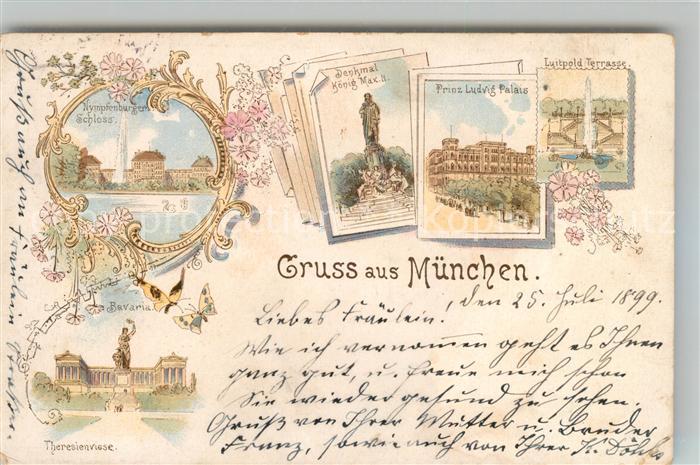 Nymphenburger
Schloss.
Denkmal
König Max II.
Prinz Ludwig Palais
Luitpold Terrasse.
Gruss aus München.
Bavaria.
Theresienwiese.
den 25. Juli 1899.
Liebes Fräulein!
Wie ich vernommen geht es Ihnen
ganz gut, u. freue mich schon
Sie wieder gesund zu sehen.
Gruß von Ihrer Mutter u. Bruder
Franz, sowie auch von Ihrer K.
Gruß auch an Fräulein